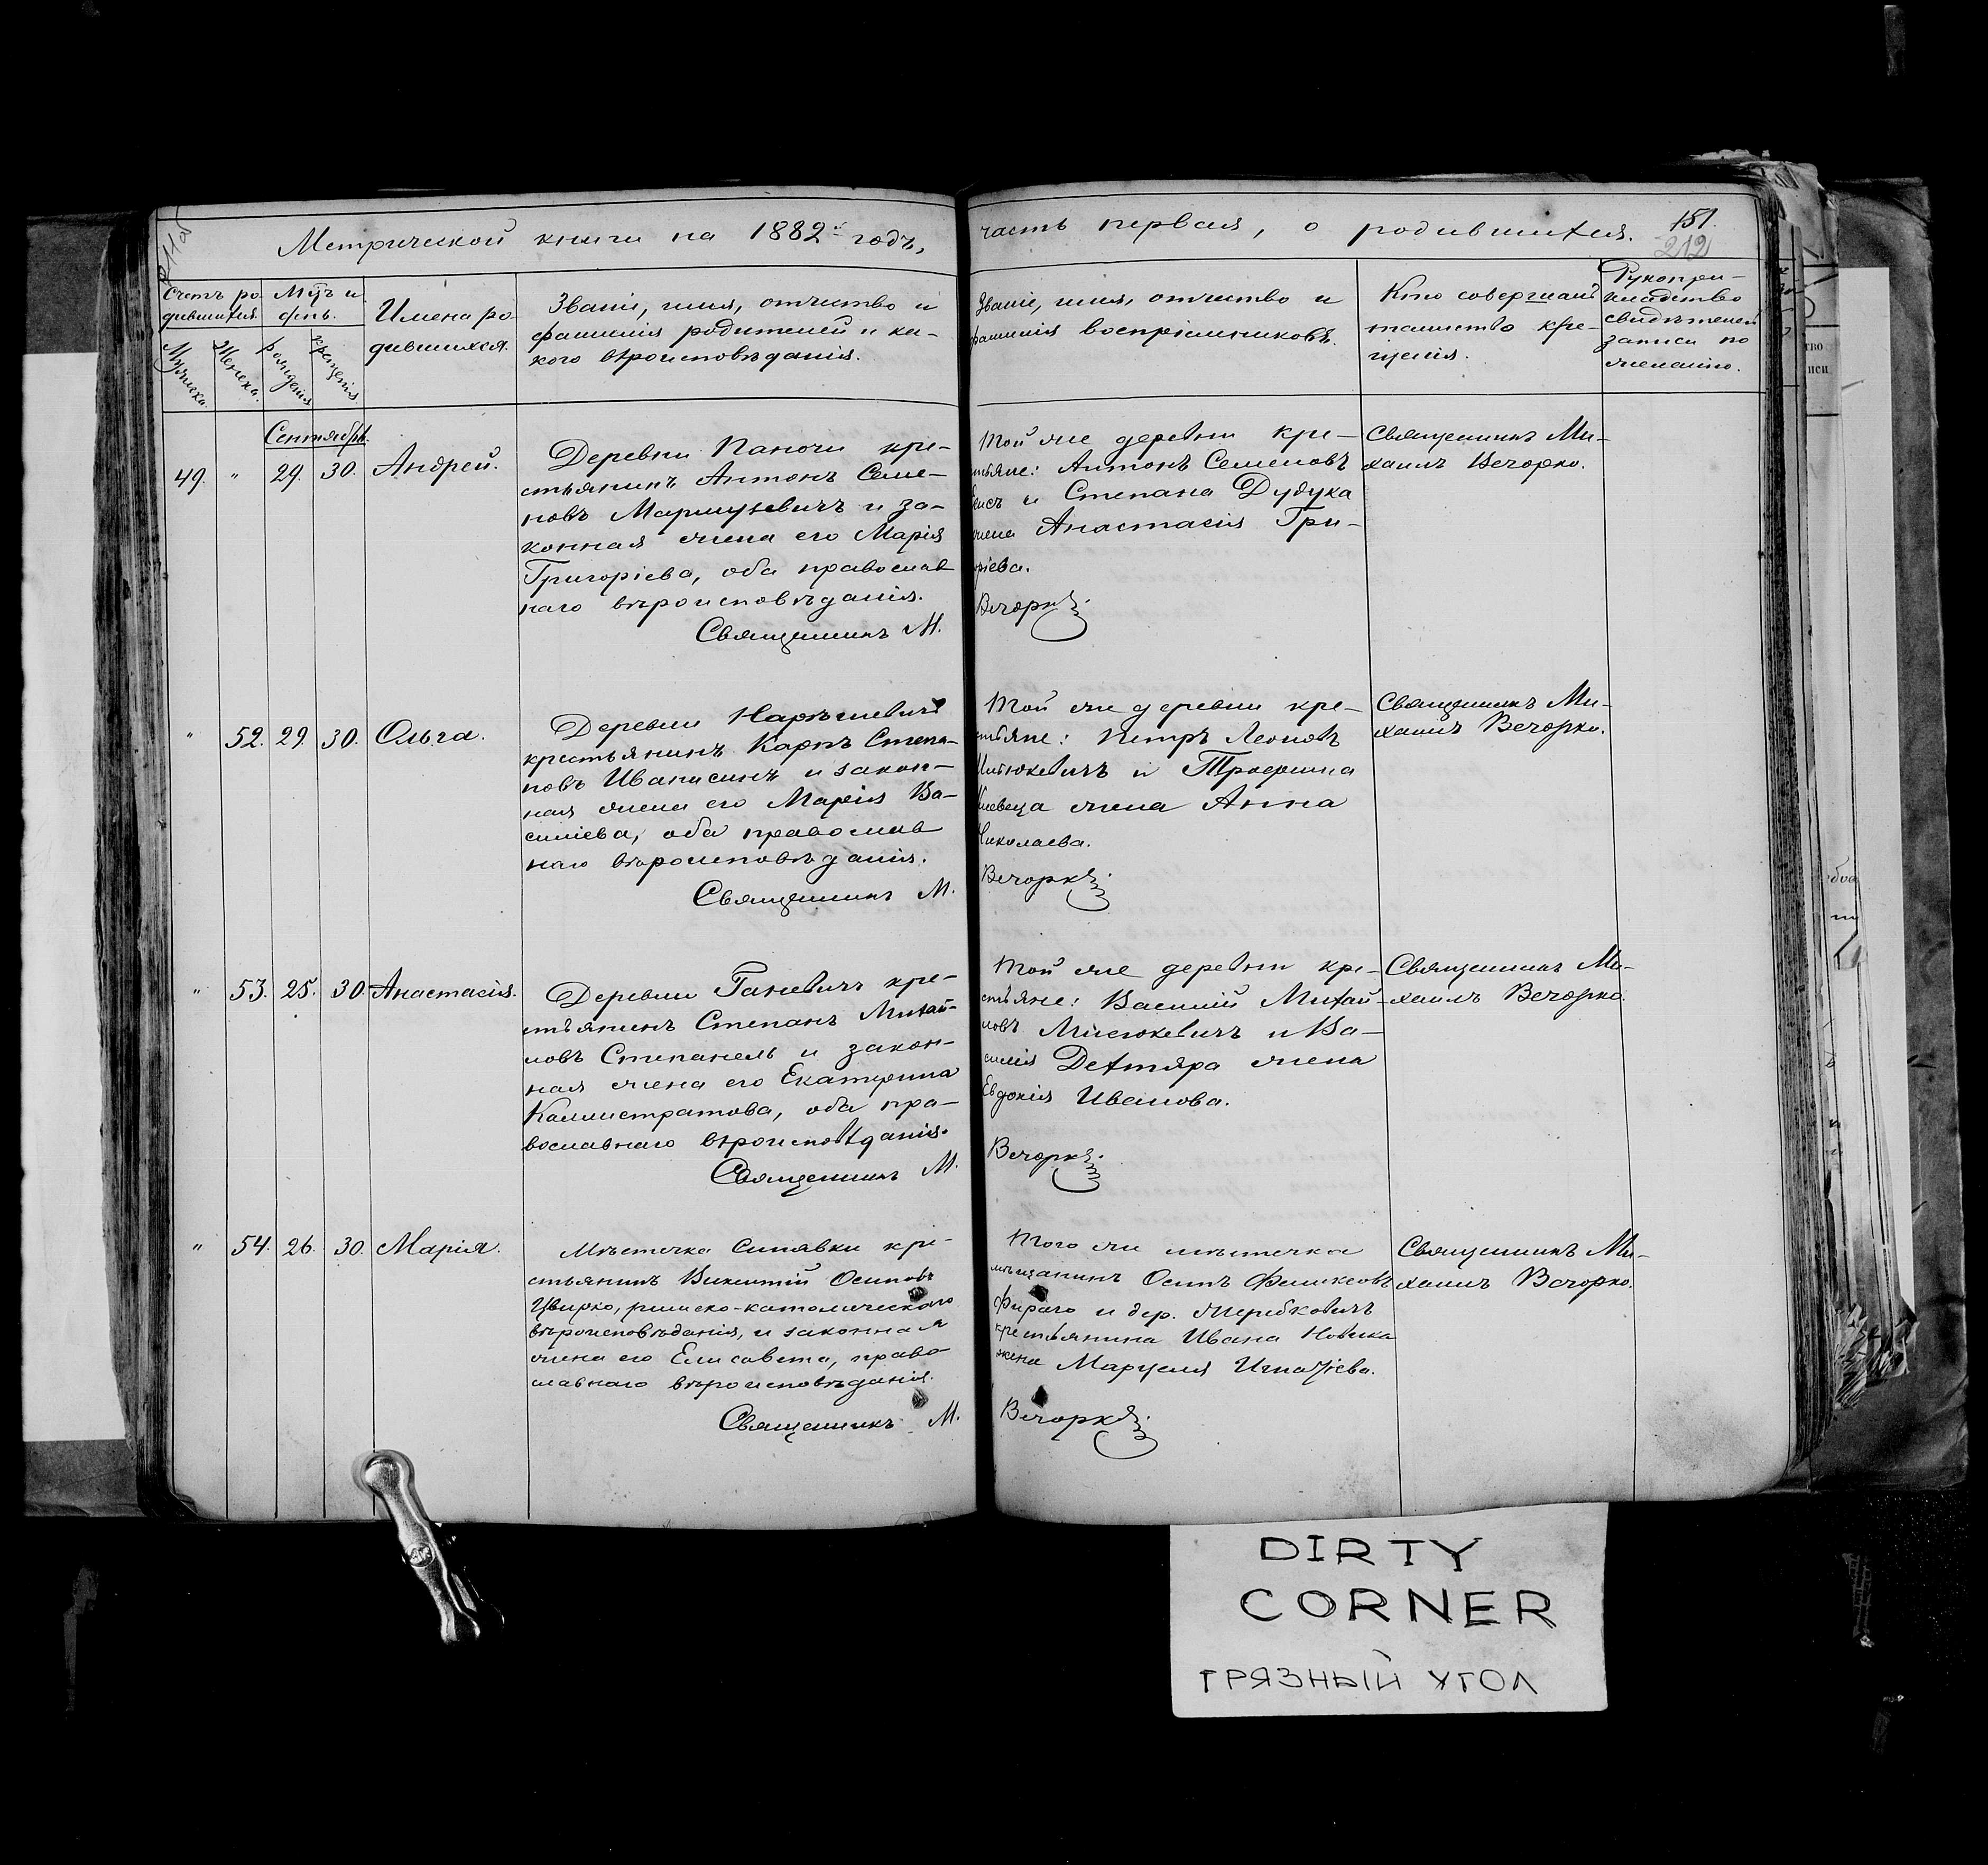 Метрической книги на 1882й годъ, часть первая, о родившихся. 151.
212
Счетъ ро-
дившихся.
Мужеска.
Женска.
Мц̃ъ и
день.
рожденія
крещенія.
Имена ро-
дившихся.
Званіе, имя, отчество и
фамилія родителей и ка-
кого вѣроисповѣданія.
Званіе, имя, отчество и
фамилія воспріемниковъ.
Кто совершалъ
таинство кре-
щенія.
Рукопри-
кладство
свидѣтелей
записи по
желанію.
Сентябрь.
49. " 29. 30. Андрей.
Деревни Паночи кре-
стьянинъ Антонъ Семе-
новъ Мартукевичъ и за-
конная жена его Марія
Григоріева, оба православ
наго вѣроисповѣданія.
Священникъ М.
Той же деревни кре-
стьяне: Антонъ Семеновъ
и Степана Дудука
жена Анастасія Гри-
горіева.
Вечорко.
Священникъ Ми-
хаилъ Вечорко.
" 52. 29. 30. Ольга.
Деревни
крестьянинъ Карпъ Степа-
новъ Иванисикъ и закон-
ная жена его Марія Ва-
силіева, оба православ
наго вѣроисповѣданія.
Священникъ М.
Той же деревни кре-
стьяне: Петръ Леоновъ
и Трофима
жена Анна
Николаева.
Вечорко.
Священникъ Ми-
хаилъ Вечорко.
" 53. 25. 30. Анастасія.
Деревни Ганевичъ кре-
стьянинъ Степанъ Михай-
ловъ Степанель и закон-
ная жена его Екатерина
Каллистратова, оба пра-
вославнаго вѣроисповѣданія.
Священникъ М.
Той же деревни кре-
стьяне: Василій Михай-
ловъ Мисюкевичъ и Ва-
силія Дехтяра жена
Евдокія Иванова.
Вечорко.
Священникъ Ми-
хаилъ Вечорко.
" 54. 26. 30. Марія.
Мѣстечка Синявки кре-
стьянинъ Викентій Осиповъ
Цвирко, римско-католическаго
вѣроисповѣданія, и законная
жена его Елисавета, право-
славнаго вѣроисповѣданія.
Священникъ М.
Того же мѣстечка
мѣщанинъ Осипъ Феликсовъ
Фираго и дер. Жеребковичъ
крестьянина Ивана Новика
жена Марцеля Игнатіева.
Вечорко.
Священникъ Ми-
хаилъ Вечорко.
DIRTY
CORNER
ГРЯЗНЫЙ УГОЛ